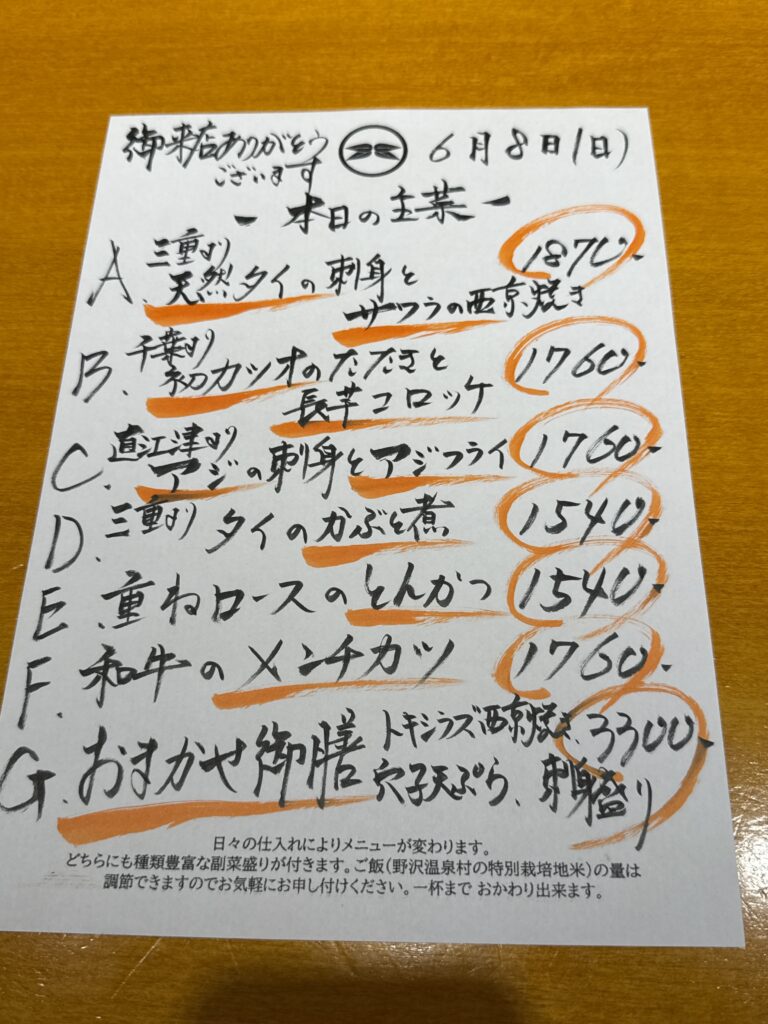 御来店ありがとう
ございます
6月8日(日)
- 本日の主菜 -
A. 三重より
天然タイの刺身と
サワラの西京焼き
1870-
B. 千葉より
初カツオのたたきと
長芋コロッケ
1760-
C. 直江津より
アジの刺身とアジフライ
1760-
D. 三重より タイのかぶと煮 1540-
E. 重ねロースのとんかつ 1540-
F. 和牛のメンチカツ 1760-
G. おまかせ御膳 トキシラズ西京焼き、
穴子天ぷら、刺身盛り
3300-
日々の仕入れによりメニューが変わります。
どちらにも種類豊富な副菜盛りが付きます。ご飯(野沢温泉村の特別栽培地米)の量は
調節できますのでお気軽にお申し付けください。一杯まで おかわり出来ます。